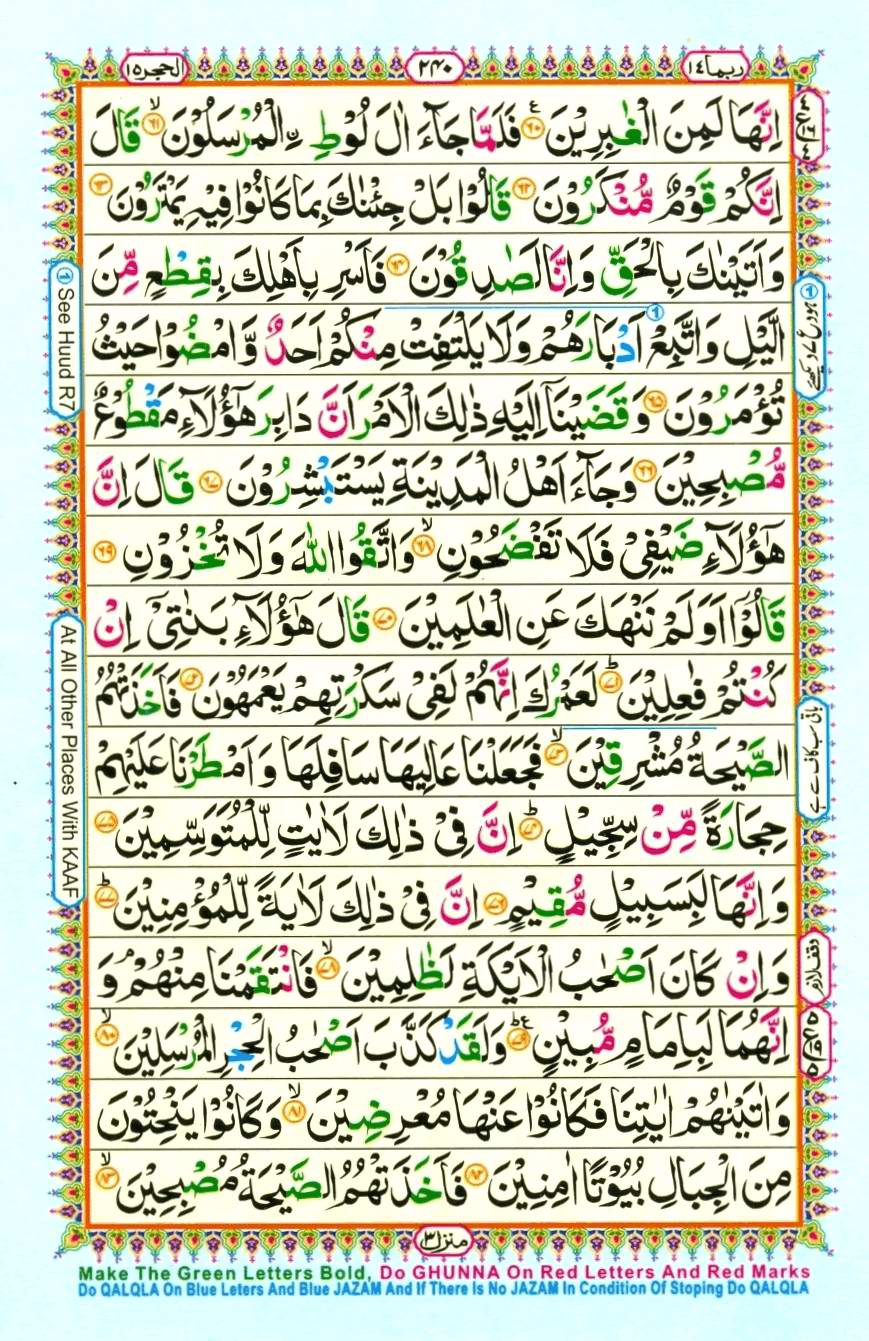 ربما ١٤
٢٤٠
الحجر ١٥
اِنَّهَا لَمِنَ الْغٰبِرِيْنَ ۶۰ فَلَمَّا جَآءَ اٰلَ لُوْطِ ࣙالْمُرْسَلُوْنَ ۶۱ قَالَ
اِنَّكُمْ قَوْمٌ مُّنْكَرُوْنَ ۶۲ قَالُوْا بَلْ جِئْنٰكَ بِمَا كَانُوْا فِيْهِ يَمْتَرُوْنَ ۶۳
وَاَتَيْنٰكَ بِالْحَقِّ وَاِنَّا لَصٰدِقُوْنَ ۶۴ فَاَسْرِ بِاَهْلِكَ بِقِطْعٍ مِّنَ
الَّيْلِ وَاتَّبِعْ اَدْبَارَهُمْ وَلَا يَلْتَفِتْ مِنْكُمْ اَحَدٌ وَّامْضُوْا حَيْثُ
تُؤْمَرُوْنَ ۶۵ وَقَضَيْنَاۤ اِلَيْهِ ذٰلِكَ الْاَمْرَ اَنَّ دَابِرَ هٰۤؤُلَآءِ مَقْطُوْعٌ
مُّصْبِحِيْنَ ۶۶ وَجَآءَ اَهْلُ الْمَدِيْنَةِ يَسْتَبْشِرُوْنَ ۶۷ قَالَ اِنَّ
هٰۤؤُلَآءِ ضَيْفِيْ فَلَا تَفْضَحُوْنِ ۶۸ وَاتَّقُوا اللّٰهَ وَلَا تُخْزُوْنِ ۶۹
قَالُوْۤا اَوَلَمْ نَنْهَكَ عَنِ الْعٰلَمِيْنَ ۷۰ قَالَ هٰۤؤُلَآءِ بَنٰتِيْۤ اِنْ
كُنْتُمْ فٰعِلِيْنَ ۷۱ لَعَمْرُكَ اِنَّهُمْ لَفِيْ سَكْرَتِهِمْ يَعْمَهُوْنَ ۷۲ فَاَخَذَتْهُمُ
الصَّيْحَةُ مُشْرِقِيْنَ ۷۳ فَجَعَلْنَا عَالِيَهَا سَافِلَهَا وَاَمْطَرْنَا عَلَيْهِمْ
حِجَارَةً مِّنْ سِجِّيْلٍ ۷۴ اِنَّ فِيْ ذٰلِكَ لَاٰيٰتٍ لِّلْمُتَوَسِّمِيْنَ ۷۵
وَاِنَّهَا لَبِسَبِيْلٍ مُّقِيْمٍ ۷۶ اِنَّ فِيْ ذٰلِكَ لَاٰيَةً لِّلْمُؤْمِنِيْنَ ۷۷
وَاِنْ كَانَ اَصْحٰبُ الْاَيْكَةِ لَظٰلِمِيْنَ ۷۸ فَانْتَقَمْنَا مِنْهُمْ وَ
اِنَّهُمَا لَبِاِمَامٍ مُّبِيْنٍ ۷۹ وَلَقَدْ كَذَّبَ اَصْحٰبُ الْحِجْرِ الْمُرْسَلِيْنَ ۸۰
وَاٰتَيْنٰهُمْ اٰيٰتِنَا فَكَانُوْا عَنْهَا مُعْرِضِيْنَ ۸۱ وَكَانُوْا يَنْحِتُوْنَ
مِنَ الْجِبَالِ بُيُوْتًا اٰمِنِيْنَ ۸۲ فَاَخَذَتْهُمُ الصَّيْحَةُ مُصْبِحِيْنَ ۸۳
منزل ٣
وقف لازم
باقی سب کاف سے ہے
① See Huud R7
At All Other Places With KAAF
Make The Green Letters Bold, Do GHUNNA On Red Letters And Red Marks
Do QALQLA On Blue Leters And Blue JAZAM And If There Is No JAZAM In Condition Of Stoping Do QALQLA